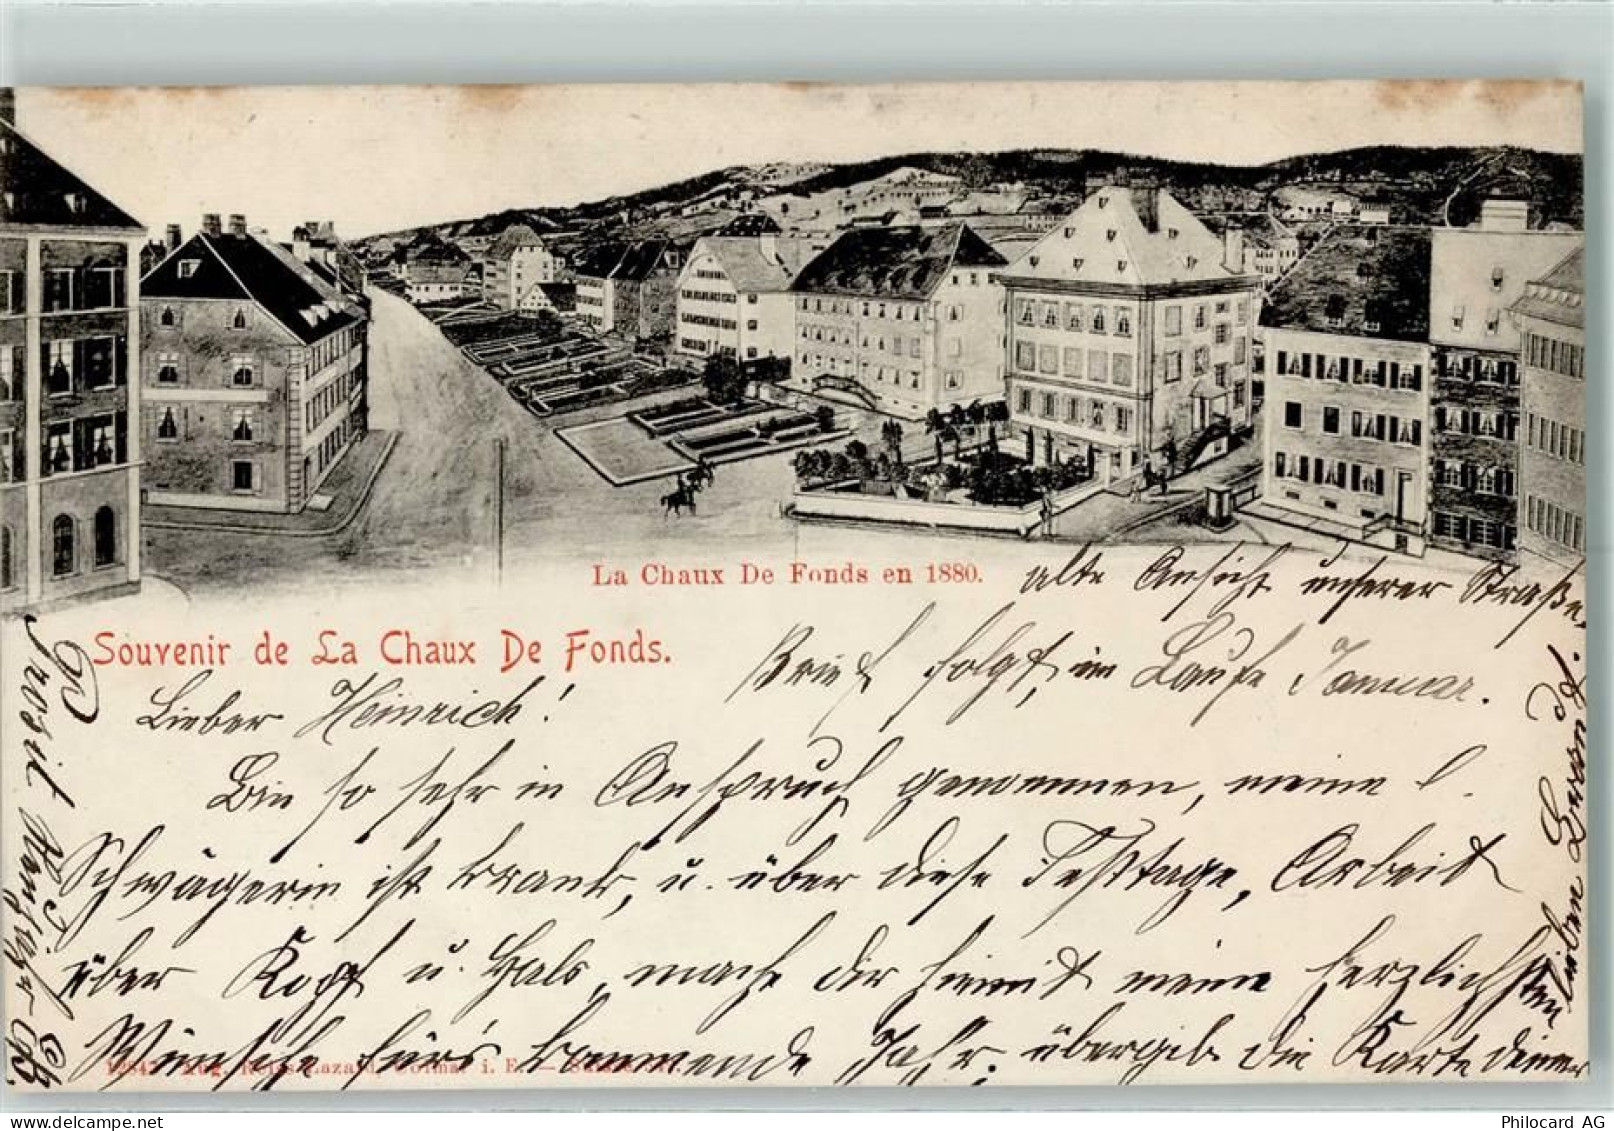 La Chaux De Fonds en 1880.
alte Ansicht unserer Straße.
Souvenir de La Chaux De Fonds.
Brief folgt, im Laufe Januar.
Lieber Heinrich!
Bin so sehr in Anspruch genommen, meine l.
Schwägerin ist krank, u. über diese Festtage, Arbeit
über Kopf u. Hals, mache dir hiemit meine herzlichsten
Wünsche fürs kommende Jahr. übergieb die Karte deiner
lieben
Prosit Neujahr 98.
12847 Aug. Reiss-Lazard, Colmar i. E. —
Philocard AG